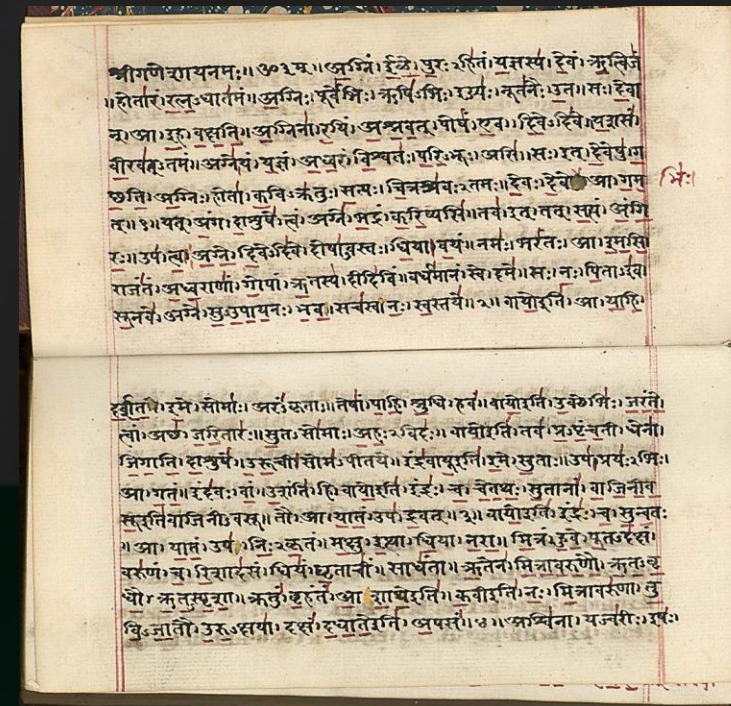 श्रीगणेशायनमः॥ॐ३म्॥अग्निं।ईळे।पुरःऽहितं।यज्ञस्य।देवं।ऋत्विजं
॥होतारं।रत्नऽधातमं॥अग्निः।पूर्वेभिः।ऋषिऽभिः।ईड्यः।नूतनैः।उत॥सः।देवा
न्।आ।इह।वक्षति॥अग्निना।रयिं।अश्नवत्।पोषं।एव।दिवेऽदिवे॥यशसं
वीरवत्ऽतमं॥अग्ने।यं।यज्ञं।अध्वरं।विश्वतः।परिऽभूः।असि॥सः।इत्।देवेषु।ग
छति॥अग्निः।होता।कविऽक्रतुः।सत्यः।चित्रश्रवःऽतमः॥देवः।देवे आ।गम
भिः।
त्॥१॥यत्।अंग।दाशुषे।त्वं।अग्ने।भद्रं।करिष्यसि॥तव।इत्।तत्।सत्यं।अंगि
रः॥उप।त्वा।अग्ने।दिवेऽदिवे।दोषाऽवस्तः।धिया।वयं॥नमः।भरंतः।आ।इमसि
राजंतं।अध्वराणां।गोपां।ऋतस्य।दीदिविं॥वर्धमानं।स्वे।दमे॥सः।नः।पिताऽइव
सूनवे।अग्ने।सुऽउपायनः।भव॥सचस्व।नः।स्वस्तये॥२॥वायोइति।आ।याहि।
दर्शत।इमे।सोमाः।अरंऽकृताः॥तेषां।पाहि।श्रुधि।हवं॥वायोइति।उक्थेभिः।जरंते।
त्वां।अछ।जरितारः॥सुतऽसोमाः।अहःऽविदः॥वायोइति।तव।प्रऽपृंचती।धेना।
जिगाति।दाशुषे॥उरूची।सोमऽपीतये॥इंद्रवायूइति।इमे।सुताः॥उप।प्रयःऽभिः।
आ।गतं॥इंदवः।वां।उशंति।हि॥वायोइति।इंद्रः।च।चेतथः।सुतानां।वाजिनीव
सूइतिवाजिनीऽवसू॥तौ।आ।यातं।उप।द्रवत्॥३॥वायोइति।इंद्रः।च।सुन्वतः
॥आ।यातं।उप।निःऽकृतं॥मक्षु।इत्था।धिया।नरा॥मित्रं।हुवे।पूतऽदक्षं।
वरुणं।च।रिशादसं॥धियं।घृताचीं।साधंता॥ऋतेन।मित्रावरुणौ।ऋतऽवृ
धौ।ऋतऽस्पृशा॥क्रतुं।बृहंतं।आशाथेइति॥कवीइति।नः।मित्रावरुणा।तु
विऽजातौ।उरुऽक्षया॥दक्षं।दधातेइति।अपसं॥४॥अश्विना।यज्वरीः।इषः।